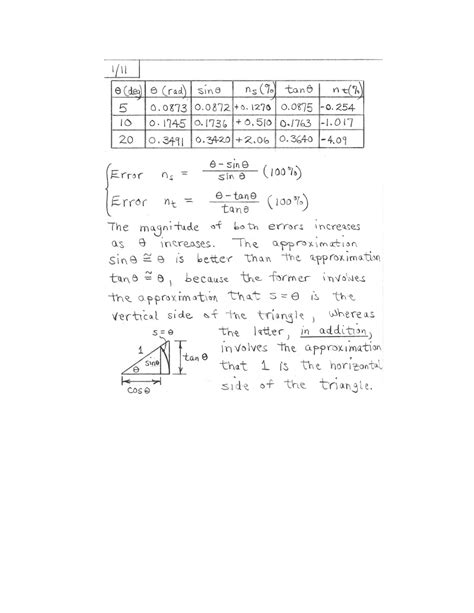 1/11
θ (deg) θ (rad) sinθ n_s (%) tanθ n_t (%)
5 0.0873 0.0872 +0.1270 0.0875 -0.254
10 0.1745 0.1736 +0.510 0.1763 -1.017
20 0.3491 0.3420 +2.06 0.3640 -4.09
Error n_s = (θ - sinθ)/(sin θ) (100%)
Error n_t = (θ - tanθ)/(tanθ) (100%)
The magnitude of both errors increases
as θ increases. The approximation
sinθ ≅ θ is better than the approximation
tanθ ≅ θ, because the former involves
the approximation that s = θ is the
vertical side of the triangle, whereas
the latter, in addition,
involves the approximation
that 1 is the horizontal
side of the triangle.
s = θ
1
sinθ
tan θ
θ
cosθ